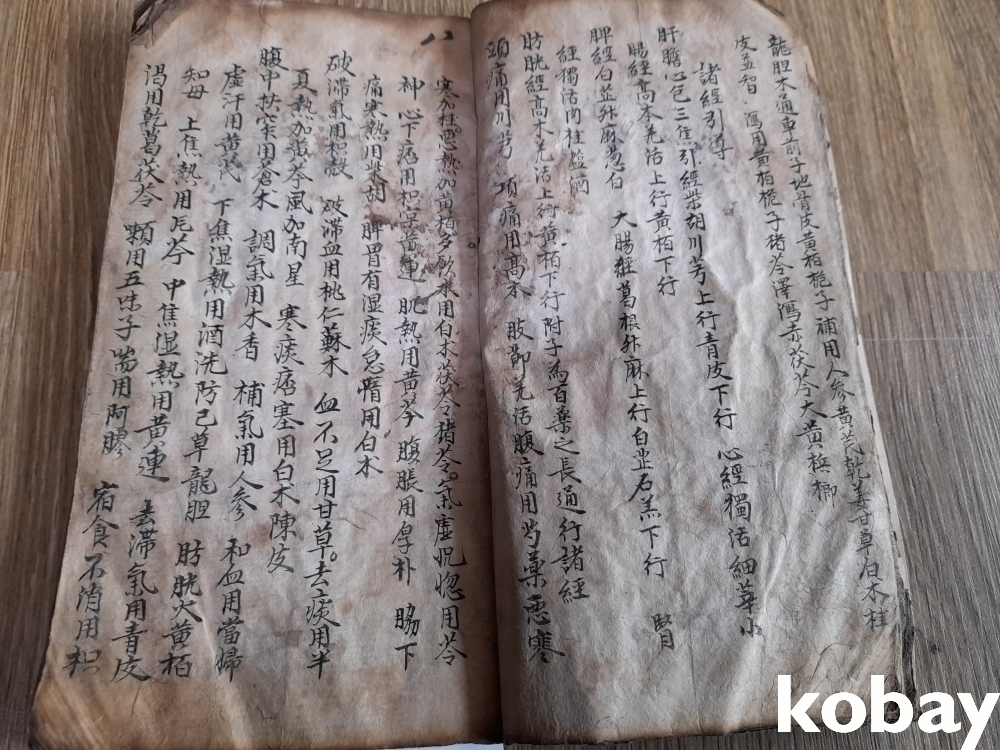 龍胆木通車前子地骨皮黃栢梔子補用人參黃芪乾姜甘草白木桂
皮益智 瀉用黃栢梔子猪苓澤瀉赤茯苓大黃梹榔
諸經引導
肝膽心包三焦引經柴胡川芎上行青皮下行 心經獨活細莘小
腸經高本羌活上行黃栢下行
脾經白芷升麻葱白 大腸經葛根升麻上行白芷石羔下行 腎
經獨活肉桂盐酒
肪胱經高木羌活上行黃栢下行附子為百藥之長通行諸經
頭痛用川芎 項痛用高本 肢節羌活腹痛用芍藥惡寒
八
寒加桂惡熱加黃栢多飲水用白木茯苓猪苓。氣虛恍惚用苓
神 心下痞用枳实黃連 肌熱用黃芩 腹脹用厚朴 脇下
痛寒熱用柴胡 脾胃有湿痰怠惰用白本
破滯氣用枳殻 破滯血用桃仁蘇木 血不足用甘草。去痰用半
夏熱加黃芩風加南星 寒痰痞塞用白木陳皮
腹中狭窄用蒼木 調氣用木香 補氣用人參 和血用當歸
虛汗用黃芪 下焦湿熱用酒洗防已草龍胆 肪胱火黃栢
知母 上焦熱用片芩 中焦湿熱用黃連 去滯氣用青皮
渴用乾葛茯苓 嗽用五味子 喘用阿膠 宿食不消用枳
kobay